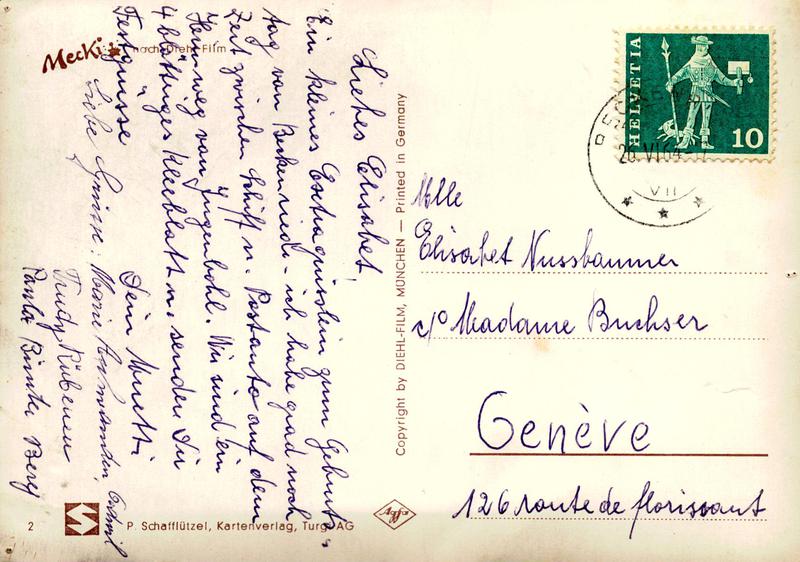 Mecki
nach Diehl-Film
Liebes Elisabet!
Ein kleines Extragrüsslein zum Geburts-
tag von Beckenried - ich habe grad noch
Zeit zwischen Schiff u. Postauto auf dem
Heimweg von Ingenbohl. Wir sind ein
4blättriges Kleeblatt u. senden Dir
Festgrüsse
Dein Muetti
Liebe Grüsse: Marie
Trudy
Paula
Copyright by DIEHL-FILM, MÜNCHEN — Printed in Germany
HELVETIA
10
26.VI.64
VII
Mlle
Elisabet Nussbaumer
c/o Madame Buchser
Genève
126 route de florissant
2
P. Schafflützel, Kartenverlag, Turgi AG
Agfa